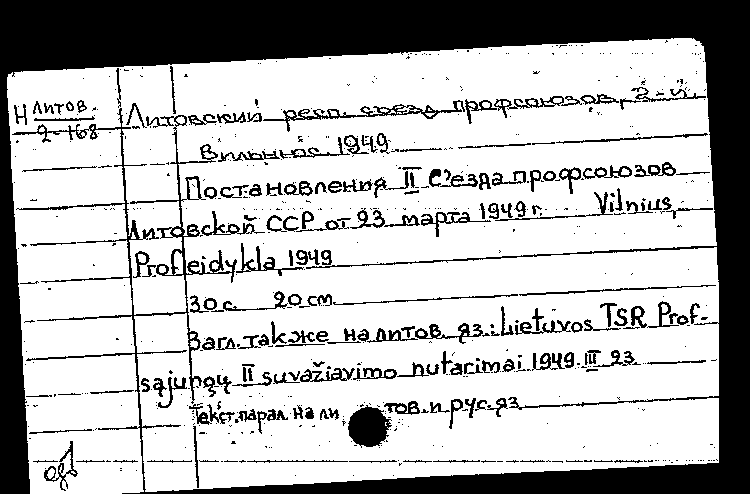 Н литов.
2-168
Литовский респ. съезд профсоюзов, 2-й.
Вильнюс. 1949
Постановления II С'езда профсоюзов
Литовской ССР от 23 марта 1949 г. Vilnius,
Profleidykla, 1949
30 с. 20 см.
Загл. также на литов. яз.: Lietuvos TSR Prof-
sąjungų II suvažiavimo nutarimai 1949 III 23
Текст парал. на литов. и рус. яз.